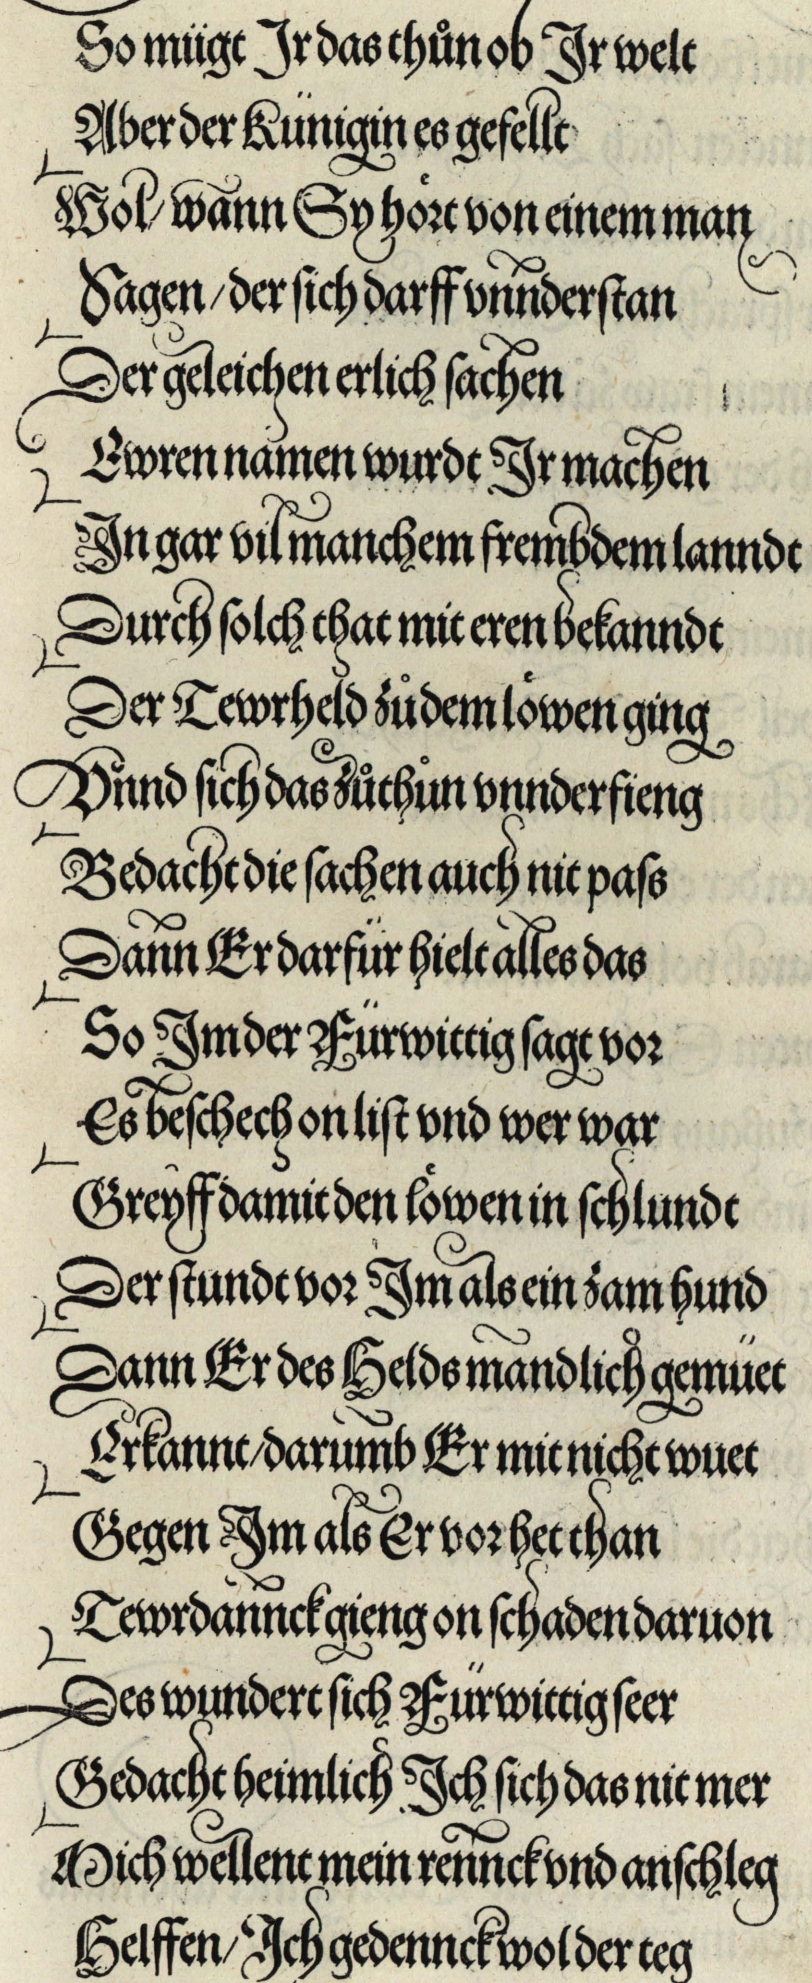 So mügt Ir das thůn ob Ir welt
Aber der Künigin es gefellt
Wol / wann Sy hört von einem man
Sagen / der sich darff vnnderstan
Der geleichen erlich sachen
Ewren namen wurdt Ir machen
In gar vil manchem frembdem lanndt
Durch solch that mit eren bekanndt
Der Tewrheld zů dem löwen ging
Vnnd sich das zůthůn vnnderfieng
Bedacht die sachen auch nit pass
Dann Er darfür hielt alles das
So Im der Fürwittig sagt vor
Es beschech on list vnd wer war
Greyff damit den löwen in schlundt
Der stundt vor Im als ein zam hund
Dann Er des Helds mandlich gemüet
Erkannt / darumb Er mit nicht wuet
Gegen Im als Er vor het than
Tewrdannck gieng on schaden daruon
Des wundert sich Fürwittig seer
Gedacht heimlich Ich sich das nit mer
Mich wellent mein rennck vnd anschleg
Helffen / Ich gedennck wol der teg